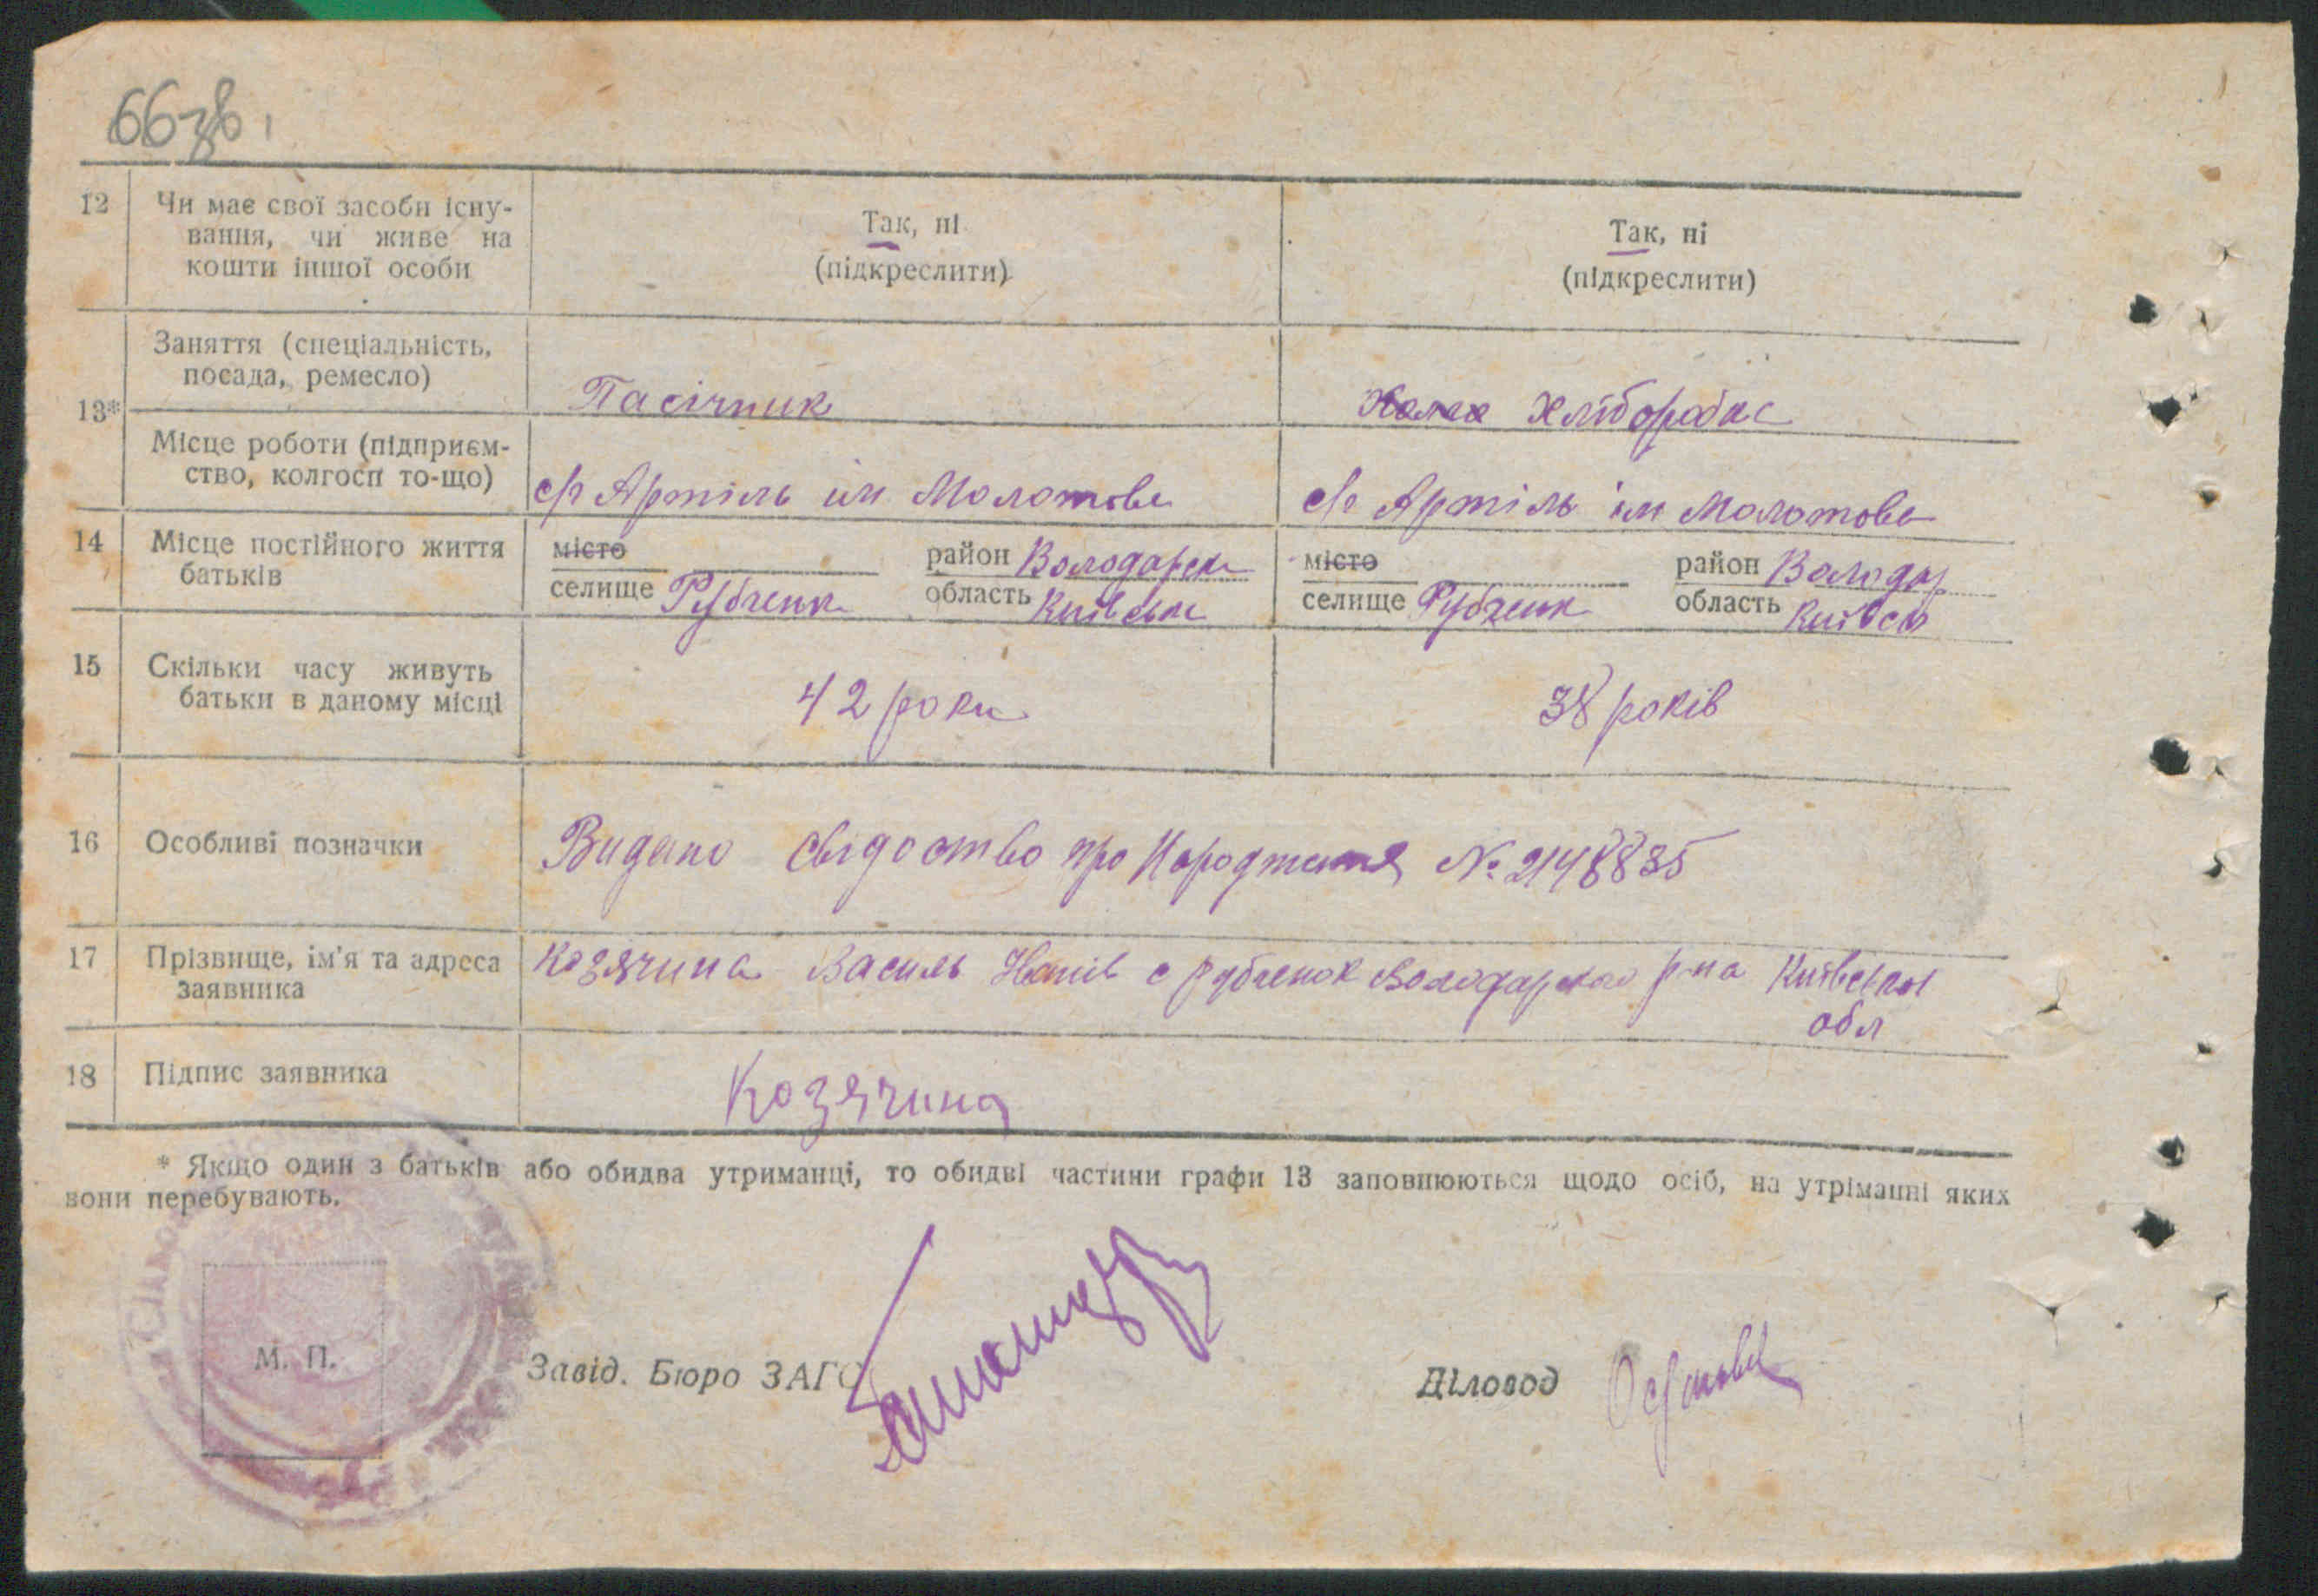 66зв.
12
Чи має свої засоби існу-
вання, чи живе на
кошти іншої особи
Так, ні
(підкреслити)
Так, ні
(підкреслити)
13*
Заняття (спеціальність,
посада, ремесло)
Пасічник
Хліборобка
Місце роботи (підприєм-
ство, колгосп то-що)
с/г Артіль ім Молотова
с/г Артіль ім Молотова
14
Місце постійного життя
батьків
місто
селище Рубченк
район Володарськ
область Київськ
місто
селище Рубченк
район Володар
область Київськ
15
Скільки часу живуть
батьки в даному місці
42 роки
38 років
16
Особливі позначки
Видано свідоство про Народження № 2148835
17
Прізвище, ім'я та адреса
заявника
Козячина Василь с Рубченок Володарсько р-на Київської
обл
18
Підпис заявника
Козячина
* Якщо один з батьків або обидва утриманці, то обидві частини графи 13 заповнюються щодо осіб, на утріманні яких
вони перебувають.
М. П.
Завід. Бюро ЗАГС
Діловод